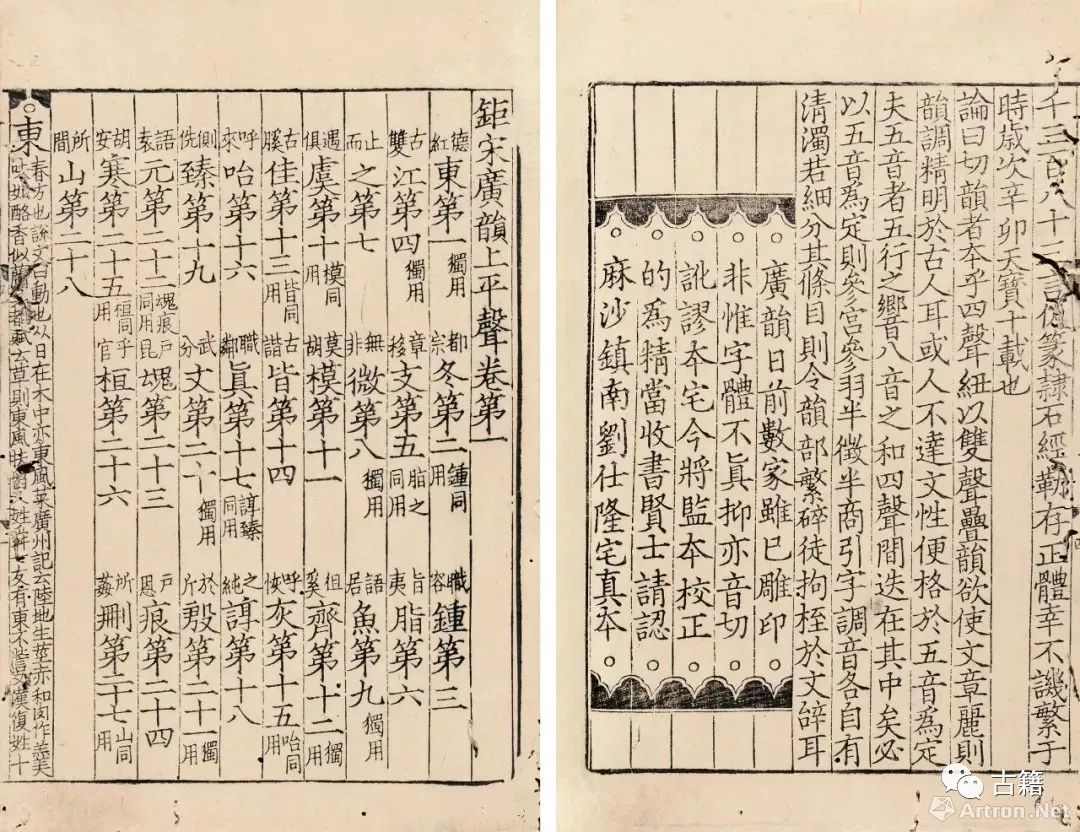 千三百八十二言仍篆隸石經勒存正體幸不譏繁于
時歲次辛卯天寶十載也
論曰切韻者本乎四聲紐以雙聲疊韻欲使文章麗則
韻調精明於古人耳或人不達文性便格於五音爲定
夫五音者五行之響八音之和四聲間迭在其中矣必
以五音爲定則參宮參羽半徵半商引字調音各自有
清濁若細分其條目則令韻部繁碎徒拘桎於文辭耳
廣韻日前數家雖已雕印
非惟字體不真抑亦音切
訛謬本宅今將監本校正
的爲精當收書賢士請認
麻沙鎮南劉仕隆宅真本
鉅宋廣韻上平聲卷第一
德紅東第一獨用 都宗冬第二鍾同用 職容鍾第三
古雙江第四獨用 章移支第五脂之同用 旨夷脂第六
止而之第七 無非微第八獨用 語居魚第九獨用
遇俱虞第十模同用 莫胡模第十一 徂奚齊第十二獨用
古膎佳第十三皆同用 古諧皆第十四 呼恢灰第十五咍同用
呼來咍第十六 職鄰眞第十七諄臻同用 之純諄第十八
側詵臻第十九 武分文第二十獨用 於斤殷第二十一獨用
語袁元第二十二魂痕同用 戶昆魂第二十三 戶恩痕第二十四
胡安寒第二十五桓同用 乎官桓第二十六 所姦刪第二十七山同用
所間山第二十八
東春方也說文曰動也从日在木中亦東風菜廣州記云陸地生莖赤和肉作羹
味如酪香似蘭吳都賦云草則東風扶留又姓舜七友有東不訾又漢複姓十
古籍
Artron.Net